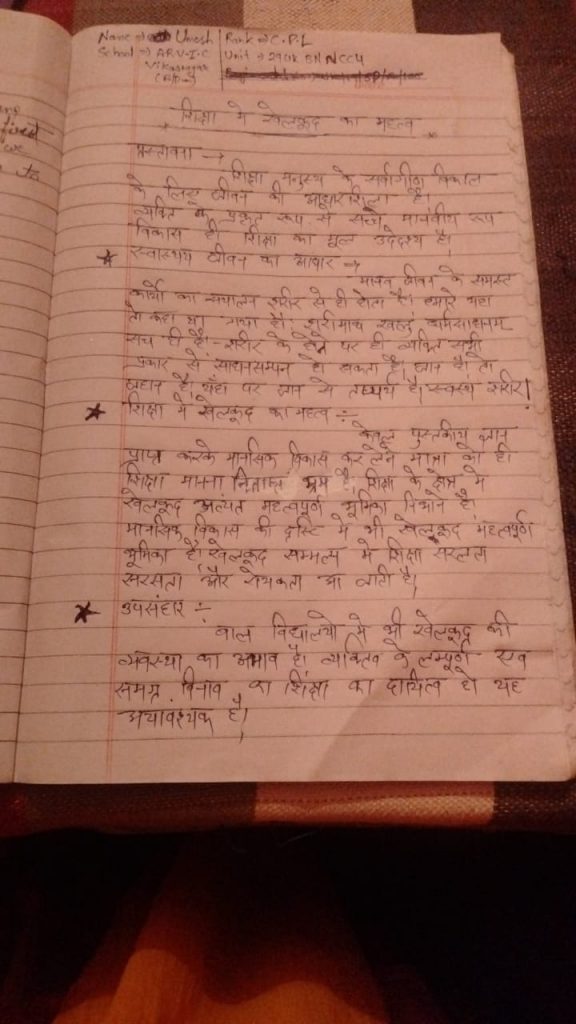 first
we
to
Name → Umesh | Rank → C.P.L
School → A.R.V.I.C | Unit → 29UK BN NCC
Vikasnagar
शिक्षा मे खेलकूद का महत्व
प्रस्तावना →
शिक्षा मनुस्य के सर्वांगीण विकास
के लिए जीवन की आधारशिला है।
व्यक्ति के प्रकृत रूप से सच्चे मानवीय रूप
विकास ही शिक्षा का मूल उदेदश्य है।
★ स्वास्थय जीवन का आधार →
मानव जीवन के समस्त
कार्यो का संचालन शरीर से ही होता है। हमारे यहा
तो कहा भी गया है: शरीरमाध खलु धर्मसाधनम
सच ही है- शरीर के होने पर ही व्यक्ति सभी
प्रकार से साधनसम्पन हो सकता है। जान है। तो
जहान है, यहा पर जान से तात्पर्य है। स्वस्थ शरीर।
★ शिक्षा मे खेलकूद का महत्व ÷
केवल पुस्तकीय ज्ञान
प्राप्त करके मानसिक विकास कर लेने मात्रा को ही
शिक्षा मानना नितान्त भ्रम है, शिक्षा के क्षेत्र मे
खेलकूद अत्यंत महत्वपूर्ण भूमिका निभाने है।
मानसिक विकास की दृस्टि मे भी खेलकूद महत्वपूर्ण
भूमिका है। खेलकूद मे शिक्षा सरलता
सरसता और रोचकता आ जाती है।
★ उपसंहार ÷
बाल विद्यालयो मे भी खेलकूद की
व्यवस्था का अभाव है। व्यक्तित्व के सम्पूर्ण एव
समग्र का शिक्षा का दायित्व हो यह
अत्यावश्यक है।